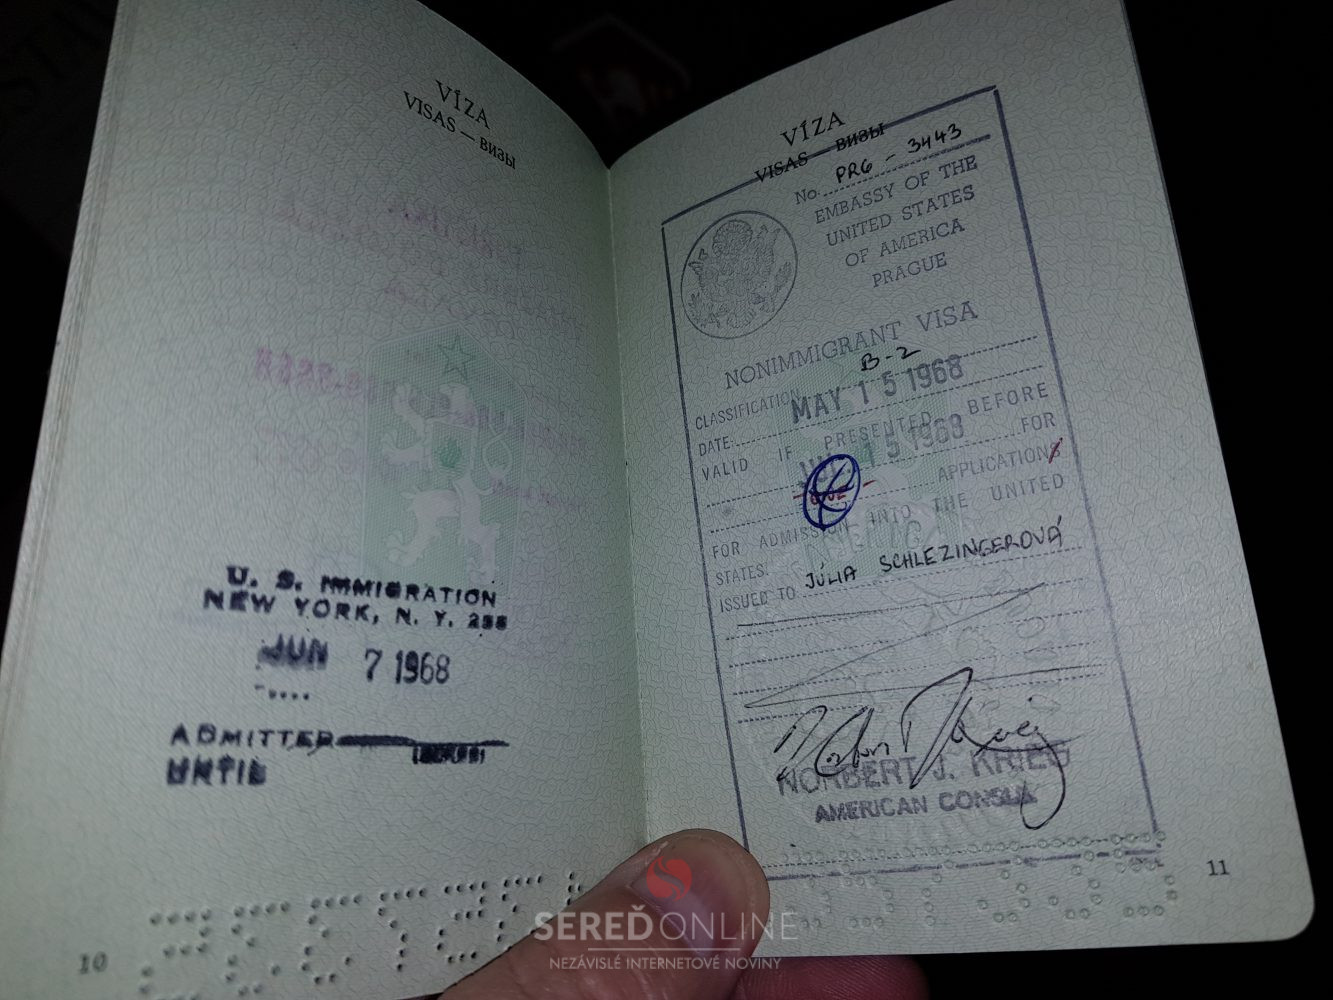 VÍZA
VISAS — ВИЗЫ
U. S. IMMIGRATION
NEW YORK, N. Y.
JUN 7 1968
ADMITTED
UNTIL
10
VÍZA
VISAS — ВИЗЫ
No. PRG - 3443
EMBASSY OF THE
UNITED STATES
OF AMERICA
PRAGUE
NONIMMIGRANT VISA
CLASSIFICATION B-2
DATE MAY 15 1968
VALID IF PRESENTED BEFORE
15 1968 FOR
APPLICATIONS
FOR ADMISSION INTO THE UNITED
STATES.
ISSUED TO JÚLIA SCHLEZINGEROVÁ
NORBERT J. KRIEG
AMERICAN CONSUL
11
SEREĎONLINE
NEZÁVISLÉ INTERNETOVÉ NOVINY